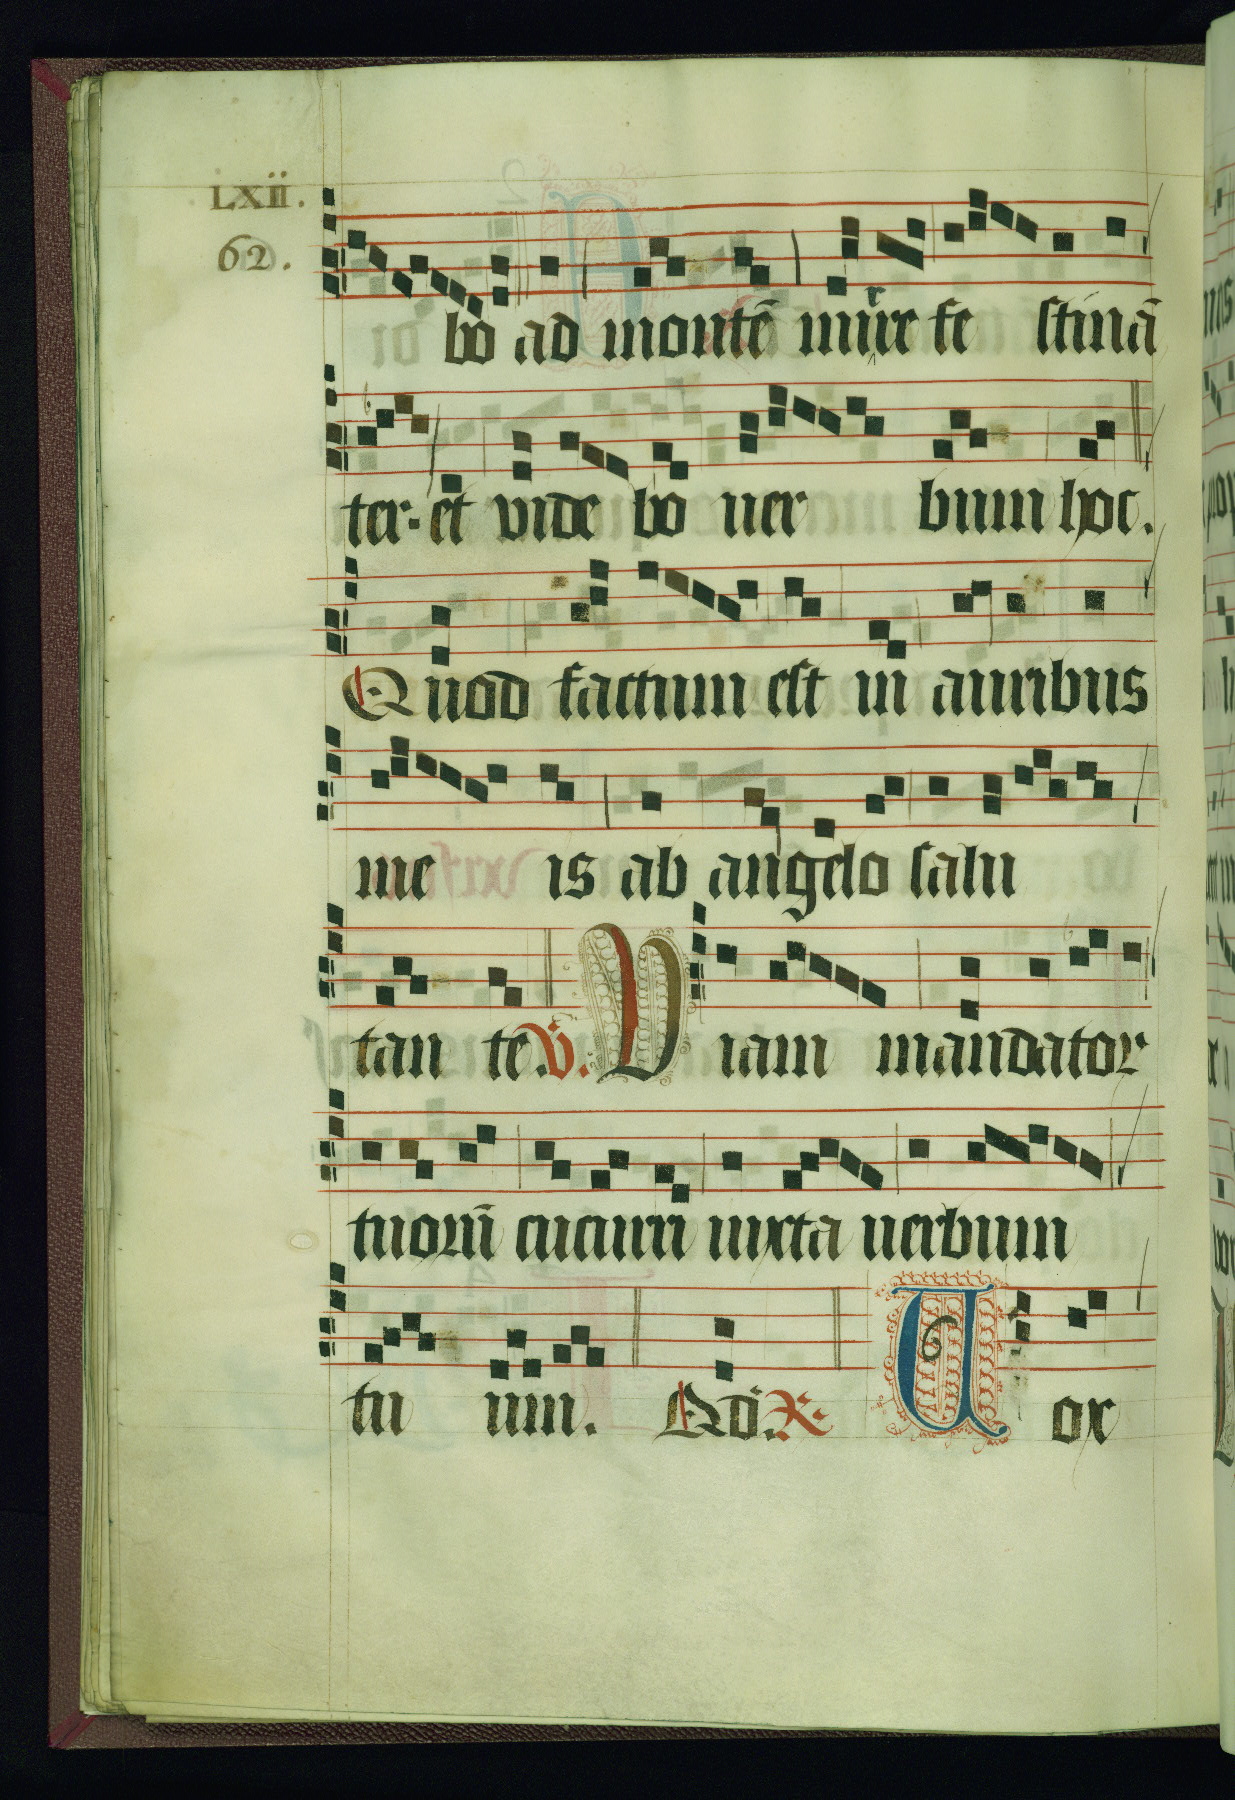 LXII.
62.
bo ad montē mirre fe stinā
ter. et vide bo uer bum hoc.
Quod factum est in auribus
me is ab angelo salu
tan te. V. Viam mandator
tuorū cucurri iuxta uerbum
tu um. Ad. R. Uox